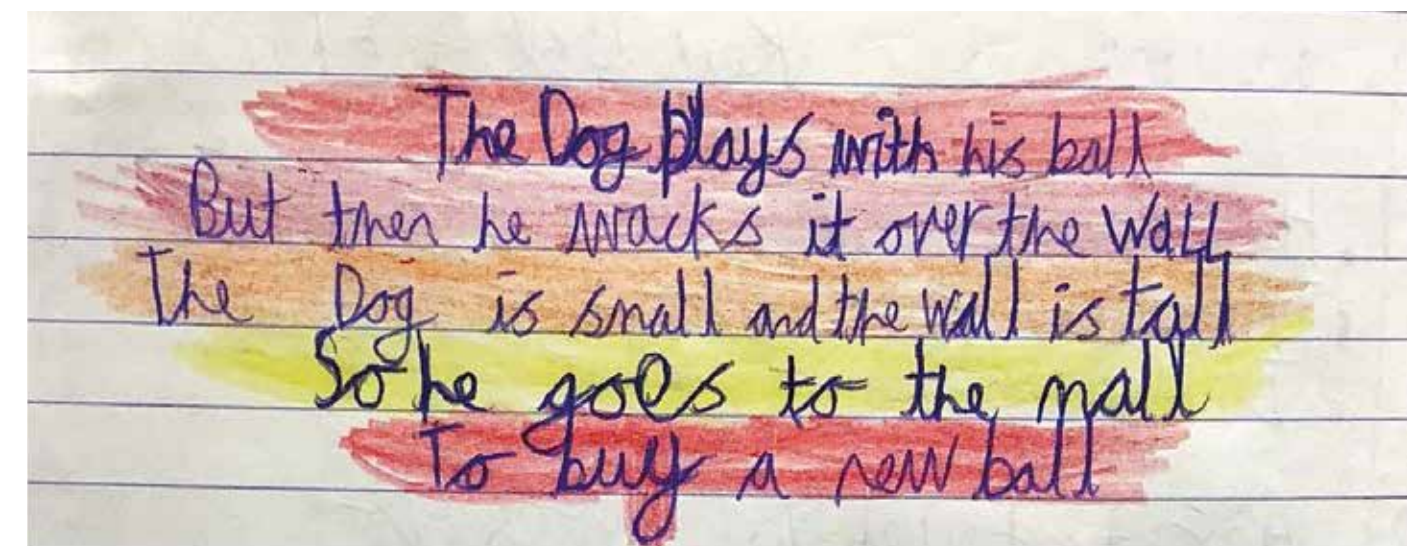 The Dog plays with his ball
But then he wacks it over the Wall
The Dog is small and the wall is tall
So he goes to the mall
To buy a new ball